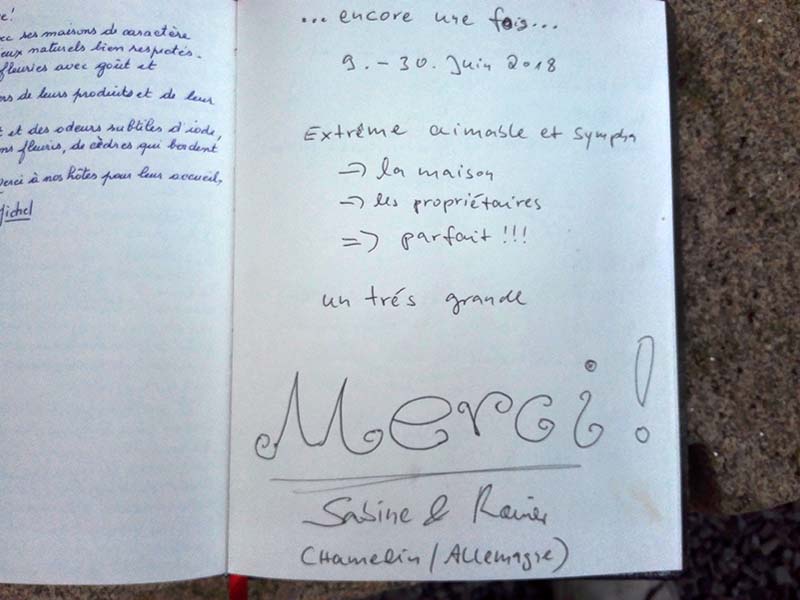 !
ses maisons de caractère
naturels bien respectés.
fleuries avec goût et
de leurs produits et de leur
et des odeurs subtiles d'iode,
fleuris, de cèdres qui bordent
à nos hôtes pour leur accueil,
... encore une fois...
9. - 30. Juin 2018
Extrême aimable et sympha
→ la maison
→ les propriétaires
⇒ parfait !!!
un trés grande
Merci!
Sabine & Rainer
(Hamelin / Allemagne)